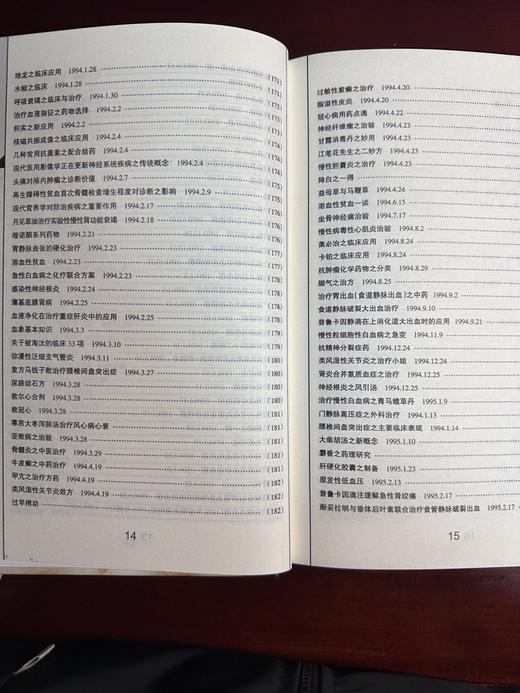 地龙之临床应用 1994.1.28 (171)
水蛭之临床 1994.1.28 (171)
呼吸衰竭之临床与治疗 1994.1.30 (172)
治疗血液指征之药物选择 1994.2.2 (173)
枳实之新应用 1994.2.2 (174)
核磁共振成像之临床应用 1994.2.2 (174)
几种常用抗菌素之配合给药 1994.2.2 (174)
现代医用影像学正在更新神经系统疾病之传统概念 1994.2.4 (174)
头痛对颅内肿瘤之诊断价值 1994.2.7 (175)
再生障碍性贫血首次骨髓检查增生程度对诊断之影响 1994.2.9 (176)
现代营养学对防治疾病之重要作用 1994.2.17 (176)
月见草油治疗实验性慢性肾功能衰竭 1994.2.18 (176)
喹诺酮系列药物 1994.2.21
胃静脉曲张的硬化治疗 1994.2.23
溶血性贫血 1994.2.23
急性白血病之化疗联合方案 1994.2.23
感染性神经根炎 1994.2.24
薄基底膜肾病 1994.2.24
血液净化在治疗重症肝炎中的应用 1994.2.28
血象基本知识 1994.3.3 (180)
关于被淘汰的临床33项 1994.3.10 (180)
弥漫性泛细支气管炎 1994.3.10
复方马钱子散治疗腰椎间盘突出症 1994.3.27
尿路结石方 1994.3.28
救尔心合剂 1994.3.28
救冠心 1994.3.28
葶苈大枣泻肺汤治疗风心病心衰 1994.3.28
亚败病之治验 1994.3.28
骨髓炎之中医治疗 1994.3.29
牛皮癣之中药治疗 1994.4.19 (182)
甲亢之治疗方药 1994.4.19 (182)
类风湿性关节炎效方 1994.4.19 (182)
过早搏动
14
过敏性紫癜之治疗 1994.4.20
脂溢性皮炎 1994.4.20
冠心病用药点滴 1994.4.22
神经纤维瘤之治验 1994.4.22
甘露消毒丹之妙用 1994.4.23
江笔花先生之二妙方 1994.4.23
慢性胆囊炎之治疗 1994.4.23
降白之一得
益母草与马鞭草 1994.4.24
溶血性贫血一谈 1994.6.15
坐骨神经痛治验 1994.8.17
慢性病毒性心肌炎治验 1994.8.24
菌必治之临床应用 1994.8.24
卡铂之临床应用 1994.8.24
抗肿瘤化学药物之分类 1994.8.25
脚气之治方 1994.8.25
治疗胃出血(食道静脉出血)之中药 1994.9.2
食道静脉破裂大出血治疗 1994.9.8
普鲁卡因静滴在上消化道大出血时的应用 1994.9.21
慢性粒细胞性白血病之急变 1994.11.6
抗精神分裂症药 1994.12.24
类风湿性关节炎之治疗小结 1994.12.24
肾炎合并氮质血症之治疗 1994.12.24
神经根炎之风引汤 1994.12.25
治疗慢性白血病之青马蟾草丹 1995.1.9
门静脉高压症之外科治疗 1995.1.13
腰椎间盘突出症之主要临床表现 1995.1.14
大柴胡汤之新概念 1995.1.10
麝香之药理研究
肝硬化胶囊之制备 1995.1.23
原发性低血压 1995.2.13
普鲁卡因滴注缓解急性胃绞痛 1995.2.17
酚妥拉明与垂体后叶素联合治疗食管静脉破裂出血 1995.2.17
15